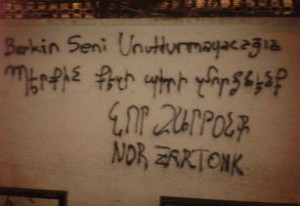 Berkin Seni Unutturmayacağız
Պէրքին քեզի պիտի
ՆՈՐ ԶԱՐԹՕՆՔ
NOR ZARTONK